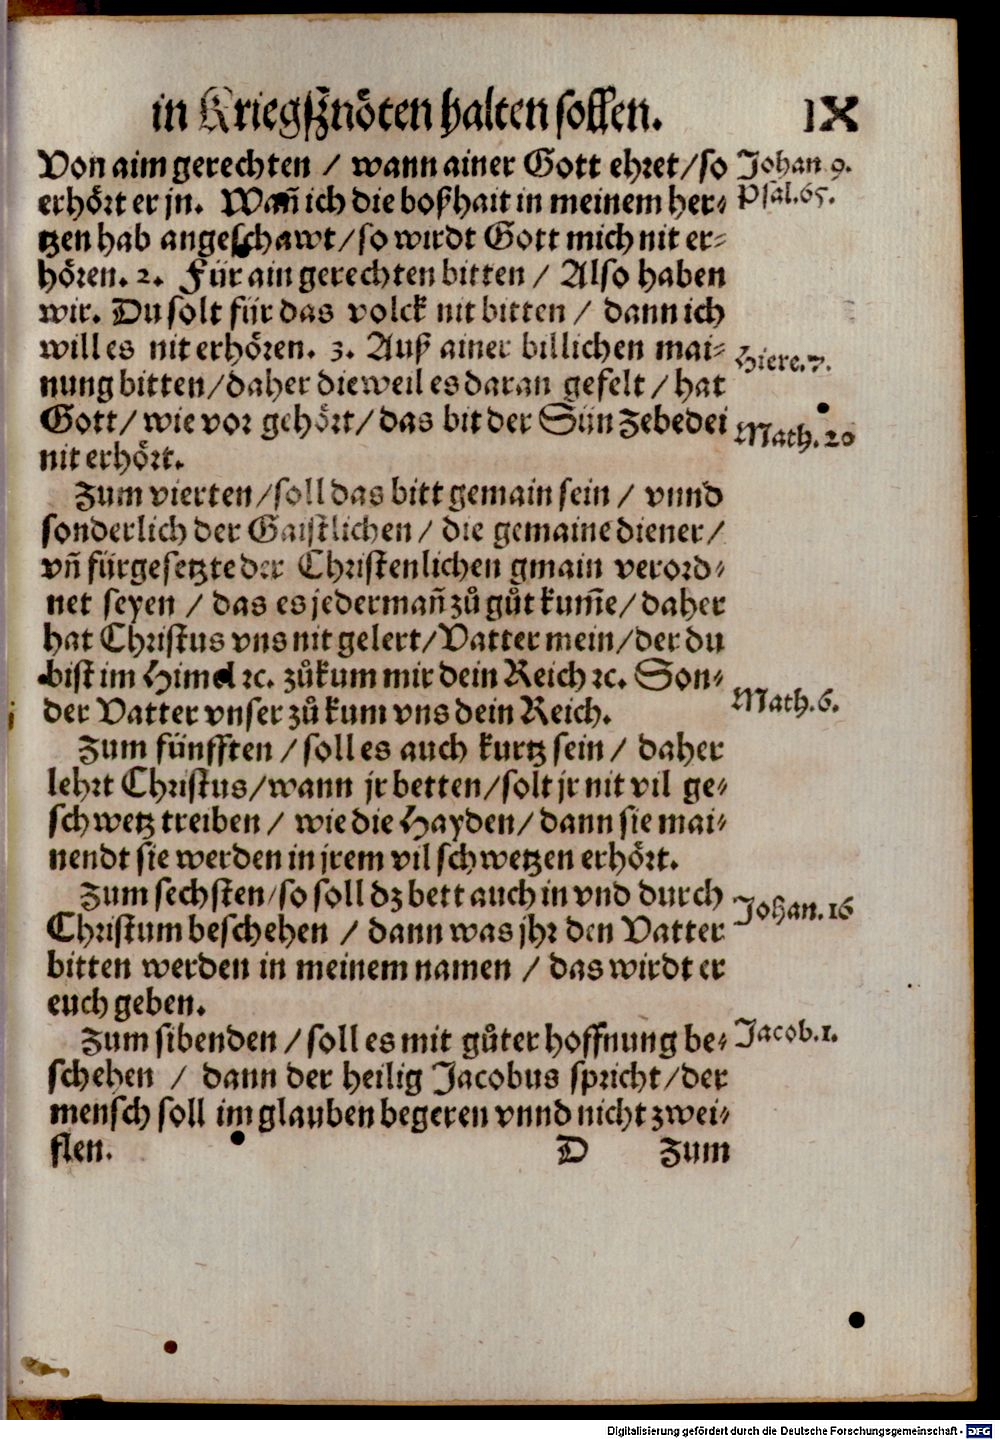 in Kriegßnöten halten sollen. IX
Von aim gerechten / wann ainer Gott ehret/so Johan 9.
erhört er jn. Wañ ich die boßhait in meinem her⸗ Psal.65.
tzen hab angeschawt/so wirdt Gott mich nit er⸗
hören. 2. Für ain gerechten bitten / Also haben
wir. Du solt für das volck nit bitten / dann ich
will es nit erhören. 3. Auß ainer billichen mai⸗ Hiere.7.
nung bitten/daher dieweil es daran gefelt / hat
Gott/ wie vor gehört/das bit der Sün Zebedei Math.20
nit erhört.
Zum vierten/soll das bitt gemain sein / vnnd
sonderlich der Gaistlichen/ die gemaine diener/
vñ fürgesetzte der Christenlichen gmain verord⸗
net seyen / das es jedermañ zů gůt kum̃e/daher
hat Christus vns nit gelert/Vatter mein/der du
bist im Himel ꝛc. zůkum mir dein Reich ꝛc. Son⸗
der Vatter vnser zů kum vns dein Reich. Math.6.
Zum fünfften /soll es auch kurtz sein / daher
lehrt Christus/wann jr betten/solt jr nit vil ge⸗
schwetz treiben / wie die Hayden/dann sie mai⸗
nendt sie werden in jrem vil schwetzen erhört.
Zum sechsten/so soll dz bett auch in vnd durch Johan.16
Christum beschehen / dann was jhr den Vatter
bitten werden in meinem namen / das wirdt er
euch geben.
Zum sibenden /soll es mit gůter hoffnung be⸗ Jacob.1.
schehen / dann der heilig Jacobus spricht/der
mensch soll im glauben begeren vnnd nicht zwei⸗
flen. D Zum
Digitalisierung gefördert durch die Deutsche Forschungsgemeinschaft - DFG